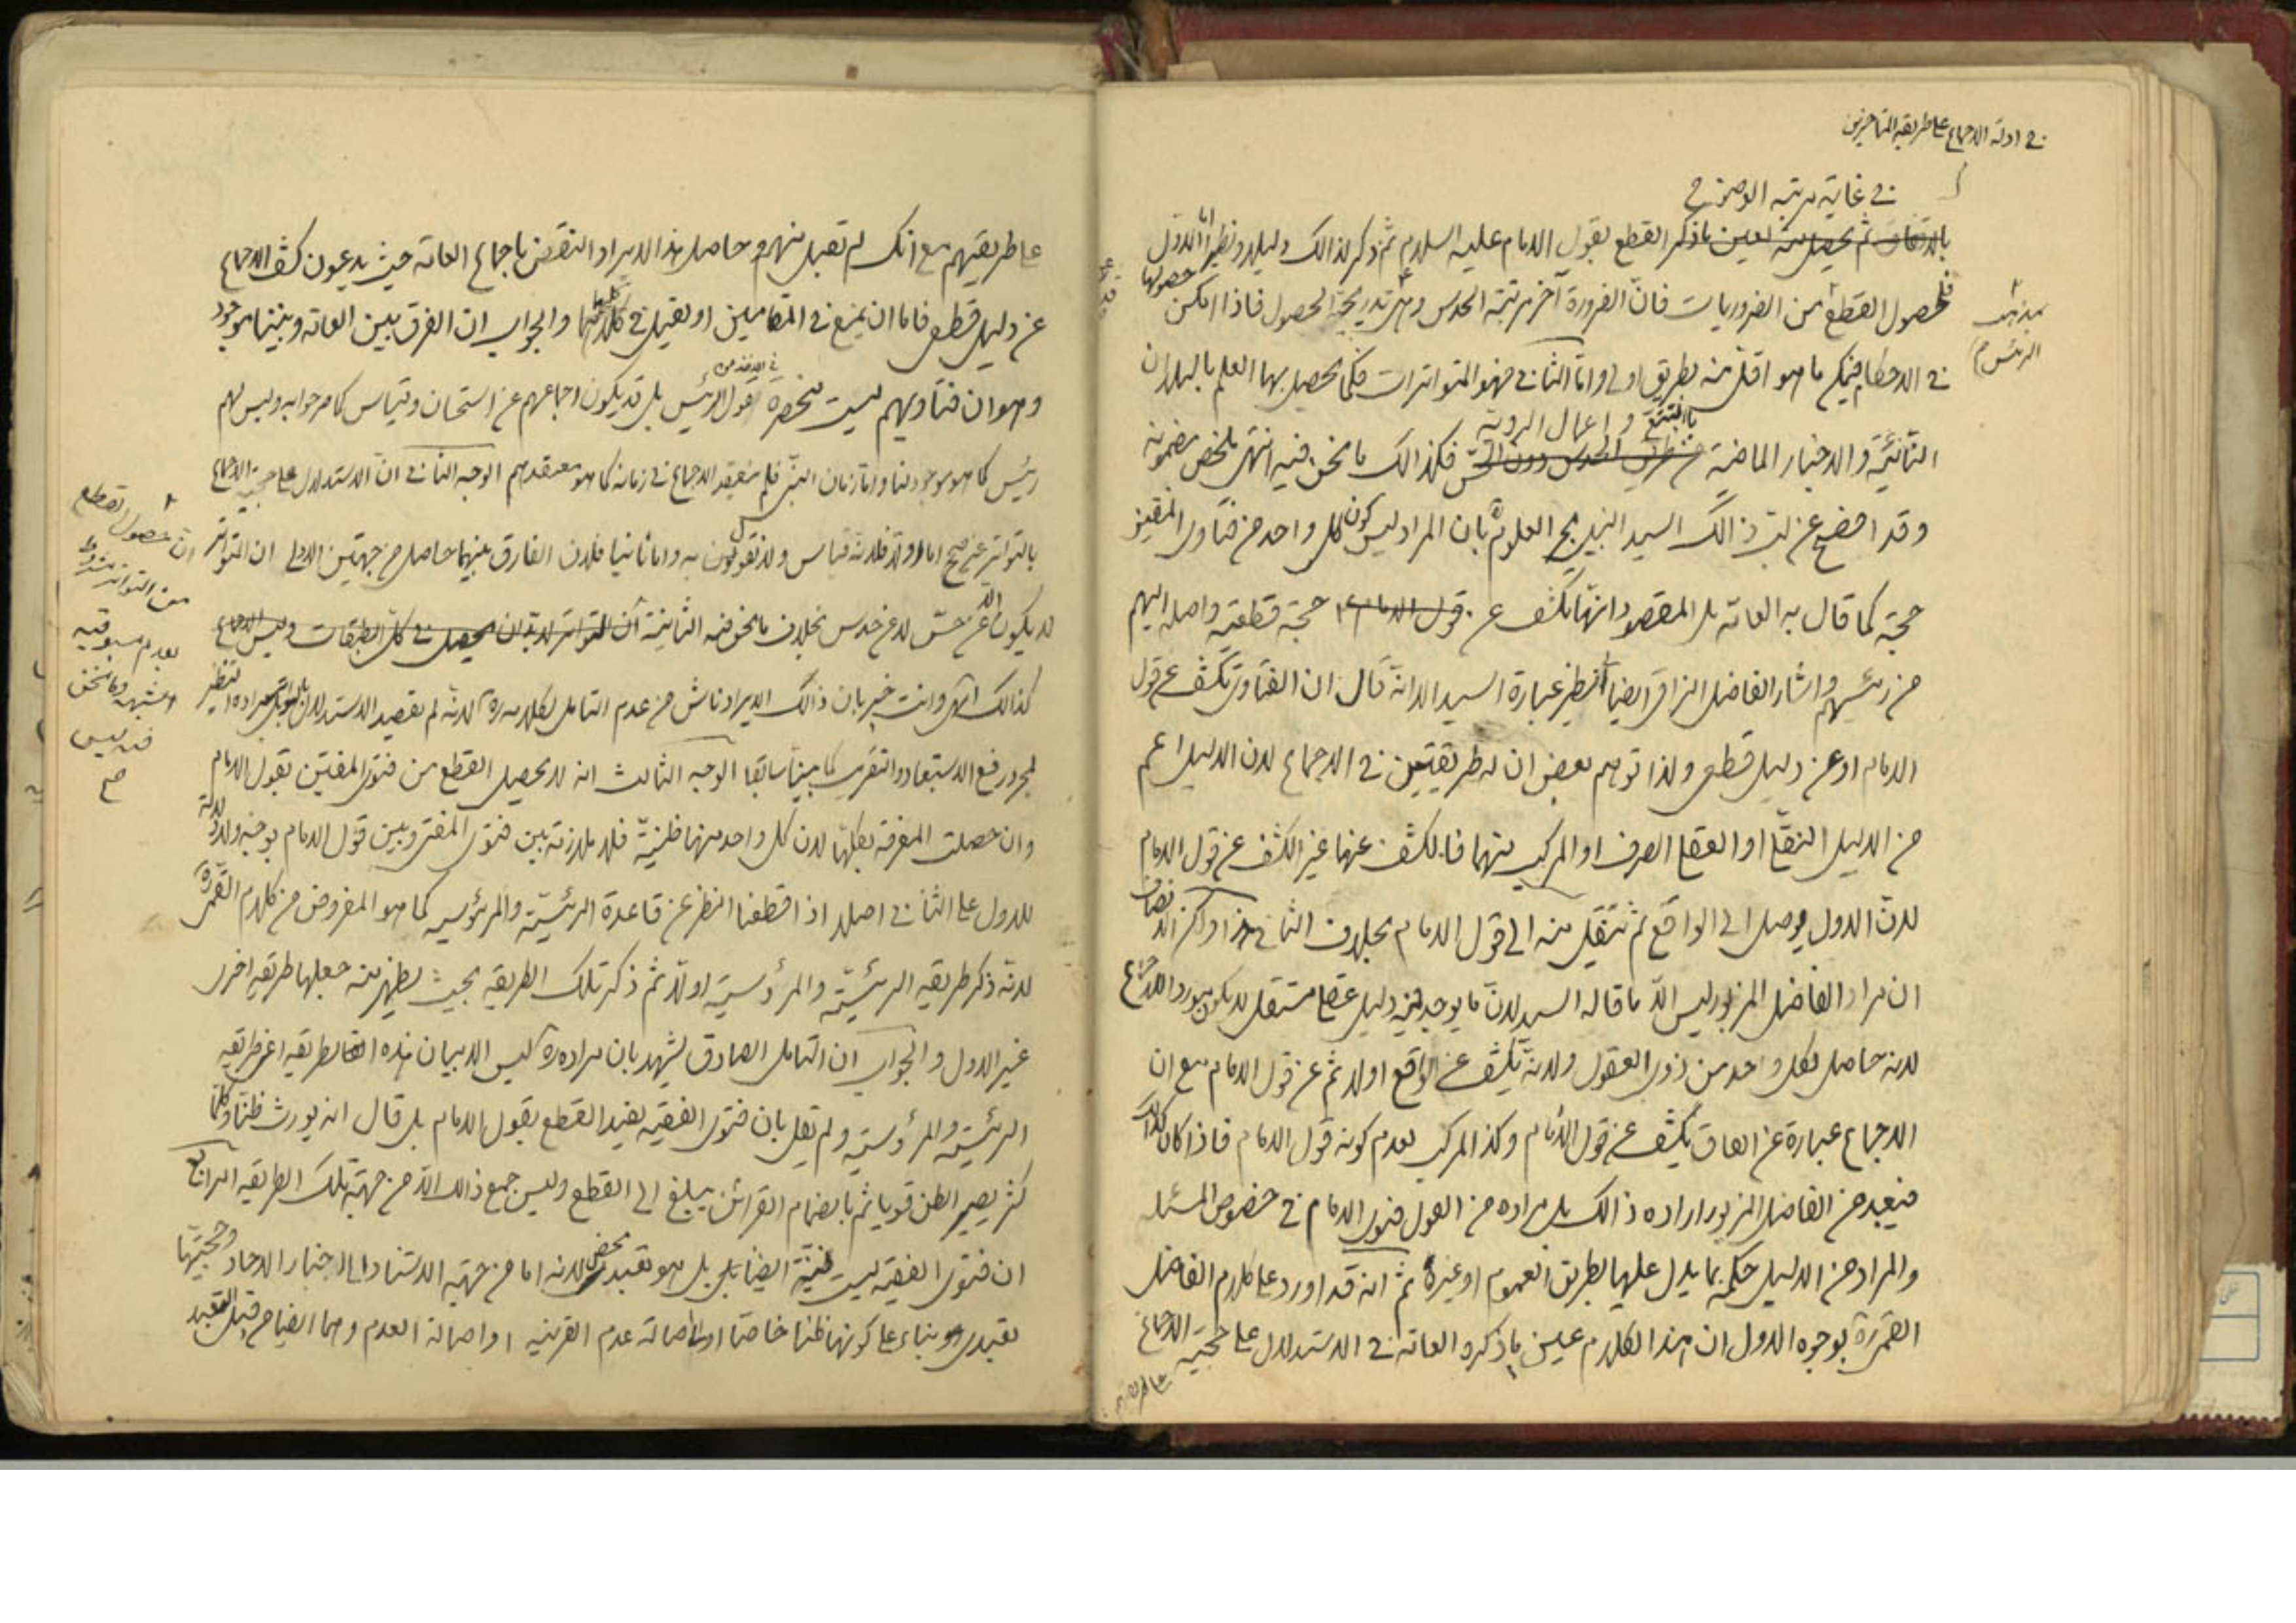 في ادلة الاجماع على طريقة المتأخرين
في غاية مرتبة الوضوح
بالاتفاق ثم يحصل منه اليقين ما ذكر القطع بقول الامام عليه السلام ثم ذكر لذالك دليلا ونظيرا اما الاول
فلحصول القطع من الضروريات فان الضرورة آخر مرتبة الحدس وهي تدريجية الحصول فاذا امكن حصولها
بمذهب
الرئيس
في الاحكام فيمكن ما هو اقل منه بطريق اولى واما الثاني فهو المتواترات فكما يحصل بها العلم بالبلدان
بالتتبع و اعمال الروية
النائية والاخبار الماضية من طريق الحدس دون الحس فكذالك ما نحن فيه انتهى ملخص مضمونه
وقد افصح عن لب ذالك السيد السند بحر العلوم بان المراد ليس كون كل واحد من فتاوى المفتين
حجة كما قال به العامة بل المقصود انها تكشف عن قول الامام ع حجة قطعية واصلة اليهم
من رئيسهم واشار الفاضل النراقي ايضا بنظير عبارة السيد الا انه قال ان الفتاوى تكشف عن قول
الامام او عن دليل قطعي ولذا توهم بعض ان له طريقتين في الاجماع لان الدليل اعم
من الدليل النقلي او العقلي الصرف او المركب منهما فالكشف عنها غير الكشف عن قول الامام
لان الاول يوصل الى الواقع ثم ننتقل منه الى قول الامام بخلاف الثاني هذا ولكن الانصاف
ان مراد الفاضل المزبور ليس الا ما قاله السيد لان ما يوجد فيه دليل عقلي مستقل لا يكون مورد الاجماع
لانه حاصل لكل واحد من ذوي العقول ولانه يكشف عن الواقع اولا ثم عن قول الامام مع ان
الاجماع عبارة عن اتفاق يكشف عن قول الامام وكذا المركب لعدم كونه قول الامام فاذا كان كذالك
فيبعد من الفاضل المزبور اراده ذالك بل مراده من القول فتوى الامام في خصوص المسئلة
والمراد من الدليل حكمه بما يدل عليها بطريق العموم او غيره ثم انه قد اورد على كلام الفاضل
القمي ره بوجوه الاول ان هذا الكلام عين ما ذكره العامة في الاستدلال على حجية الاجماع
على طريقتهم
على طريقتهم مع انك لم تقبل منهم وحاصل هذا الايراد النقض باجماع العامة حيث يدعون كشف الاجماع
عن دليل قطعي فاما ان يمنع في المقامين او يقبل في كليهما والجواب ان الفرق بين العامة وبيننا موجود
وهو ان فتاويهم ليست منحصرة في الاخذ من قول الرئيس بل قد يكون اجماعهم عن استحسان وقياس كما مر جوابه وليس لهم
رئيس كما هو موجود لنا واما زمان النبي فلم ينعقد الاجماع في زمانه كما هو معتقدهم الوجه الثاني ان الاستدلال على حجية الاجماع
بالتواتر غير صحيح اما اولا فلانه قياس ولا تقولون به واما ثانيا فلان الفارق بينهما حاصل من جهتين الاولى ان التواتر
لا يكون الا عن حس لا عن حدس بخلاف ما نحن فيه الثانية ان التواتر لا بد ان يحصل في كل الطبقات وليس الاجماع
ان حصول القطع
من التواتر مشروط
بعدم مسبوقية
الشبهة وما نحن
فيه ليس
صح
كذالك انتهى وانت خبير بان ذالك الايراد ناش من عدم التامل لكلامه ره لانه لم يقصد الاستدلال بالتواتر بل مراده التنظير
لمجرد رفع الاستبعاد والتقريب كما بينا سابقا الوجه الثالث انه لا يحصل القطع من فتوى المفتين بقول الامام
وان حصلت المعرفة بكلها لان كل واحد منها ظنية فلا ملازمة بين فتوى المفتي وبين قول الامام بوجه ولا دلالة
للاول على الثاني اصلا اذا قطعنا النظر عن قاعدة الرئيسية والمرؤسية كما هو المفروض من كلام القمي ره
لانه ذكر طريقة الرئيسية والمرؤسية اولا ثم ذكر تلك الطريقة بحيث يظهر منه جعلها طريقة اخرى
غير الاول والجواب ان التامل الصادق يشهد بان مراده ره ليس الا بيان هذه الطريقة اعني طريقة
الرئيسية والمرؤسية ولم يقل بان فتوى الفقيه يفيد القطع بقول الامام بل قال انه يورث ظنا وكلما
كثر يصير الظن قويا ثم بانضمام القرائن يبلغ الى القطع وليس جمع ذالك الا من جهة تلك الطريقة الرابع
ان فتوى الفقيه ليست ظنية ايضا بل هو تعبد محض لانه اما من جهة الاستناد الى الاخبار الاحاد وحجيتها
تعبدي بناء على كونها ظنا خاصا او الى اصالة عدم القرينة او اصالة العدم وهما ايضا من قبيل التعبد